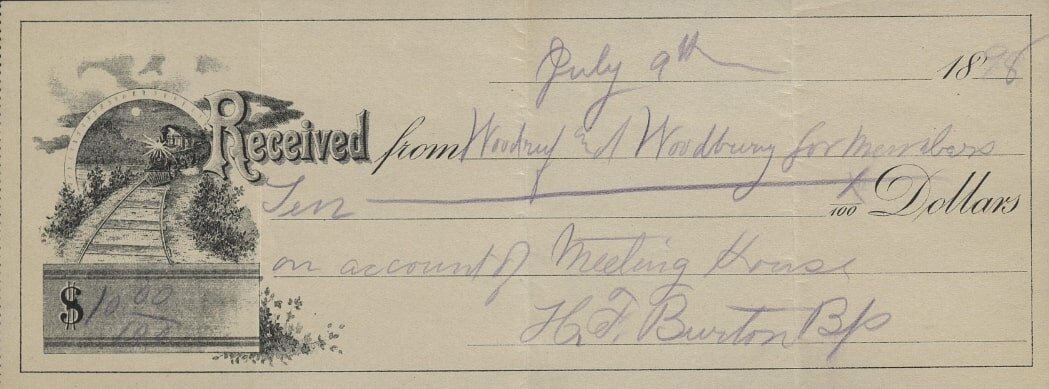 July 9th 1898
Received from Woodruf and Woodbury for Members
Ten x/100 Dollars
on account of Meeting House
$10 00/100
H. F. Burton Bp